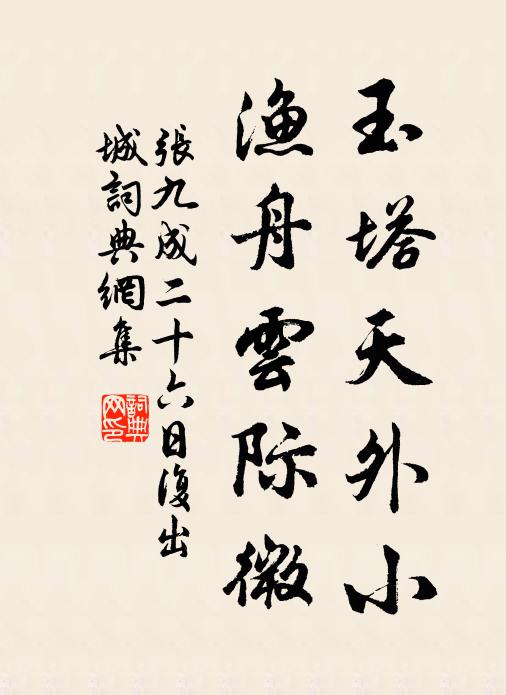 玉塔天外小
渔舟雲际微
張九成二十六日復出
城詞典網集
詞典
网印